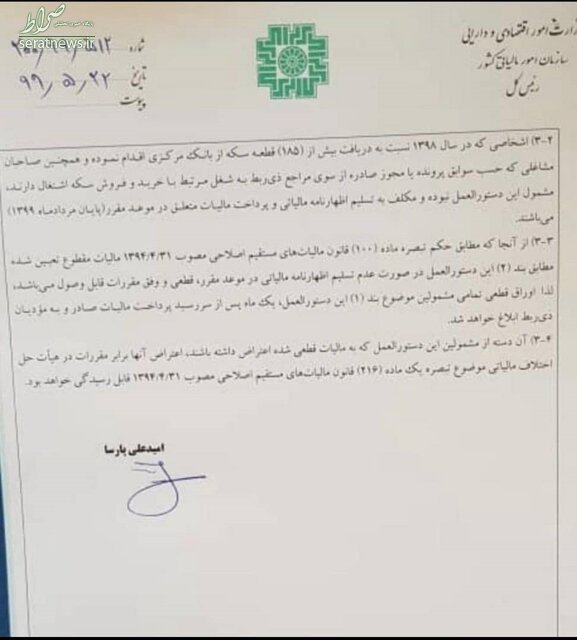 صراط
seratnews.ir
وزارت امور اقتصادی و دارایی
سازمان امور مالیاتی کشور
رئیس کل
شماره
تاریخ ۹۹,۵,۲۲
پیوست
۳-۲) اشخاصی که در سال ۱۳۹۸ نسبت به دریافت بیش از (۱۸۵) قطعه سکه از بانک مرکزی اقدام نموده و همچنین صاحبان
مشاغلی که حسب سوابق پرونده یا مجوز صادره از سوی مراجع ذی‌ربط به شغل مرتبط با خرید و فروش سکه اشتغال دارند،
مشمول این دستورالعمل نبوده و مکلف به تسلیم اظهارنامه مالیاتی و پرداخت مالیات متعلق در موعد مقرر(پایان مردادماه ۱۳۹۹)
می‌باشند.
۳-۳) از آنجا که مطابق حکم تبصره ماده (۱۰۰) قانون مالیات‌های مستقیم اصلاحی مصوب ۱۳۹۴/۴/۳۱ مالیات مقطوع تعیین شده
مطابق بند (۲) این دستورالعمل در صورت عدم تسلیم اظهارنامه مالیاتی در موعد مقرر، قطعی و وفق مقررات قابل وصول می‌باشد،
لذا اوراق قطعی تمامی مشمولین موضوع بند (۱) این دستورالعمل، یک ماه پس از سررسید پرداخت مالیات صادر و به مؤدیان
ذی‌ربط ابلاغ خواهد شد.
۳-۴) آن دسته از مشمولین این دستورالعمل که به مالیات قطعی شده اعتراض داشته باشند، اعتراض آنها برابر مقررات در هیأت حل
اختلاف مالیاتی موضوع تبصره یک ماده (۲۱۶) قانون مالیات‌های مستقیم اصلاحی مصوب ۱۳۹۴/۴/۳۱ قابل رسیدگی خواهد بود.
امیدعلی پارسا